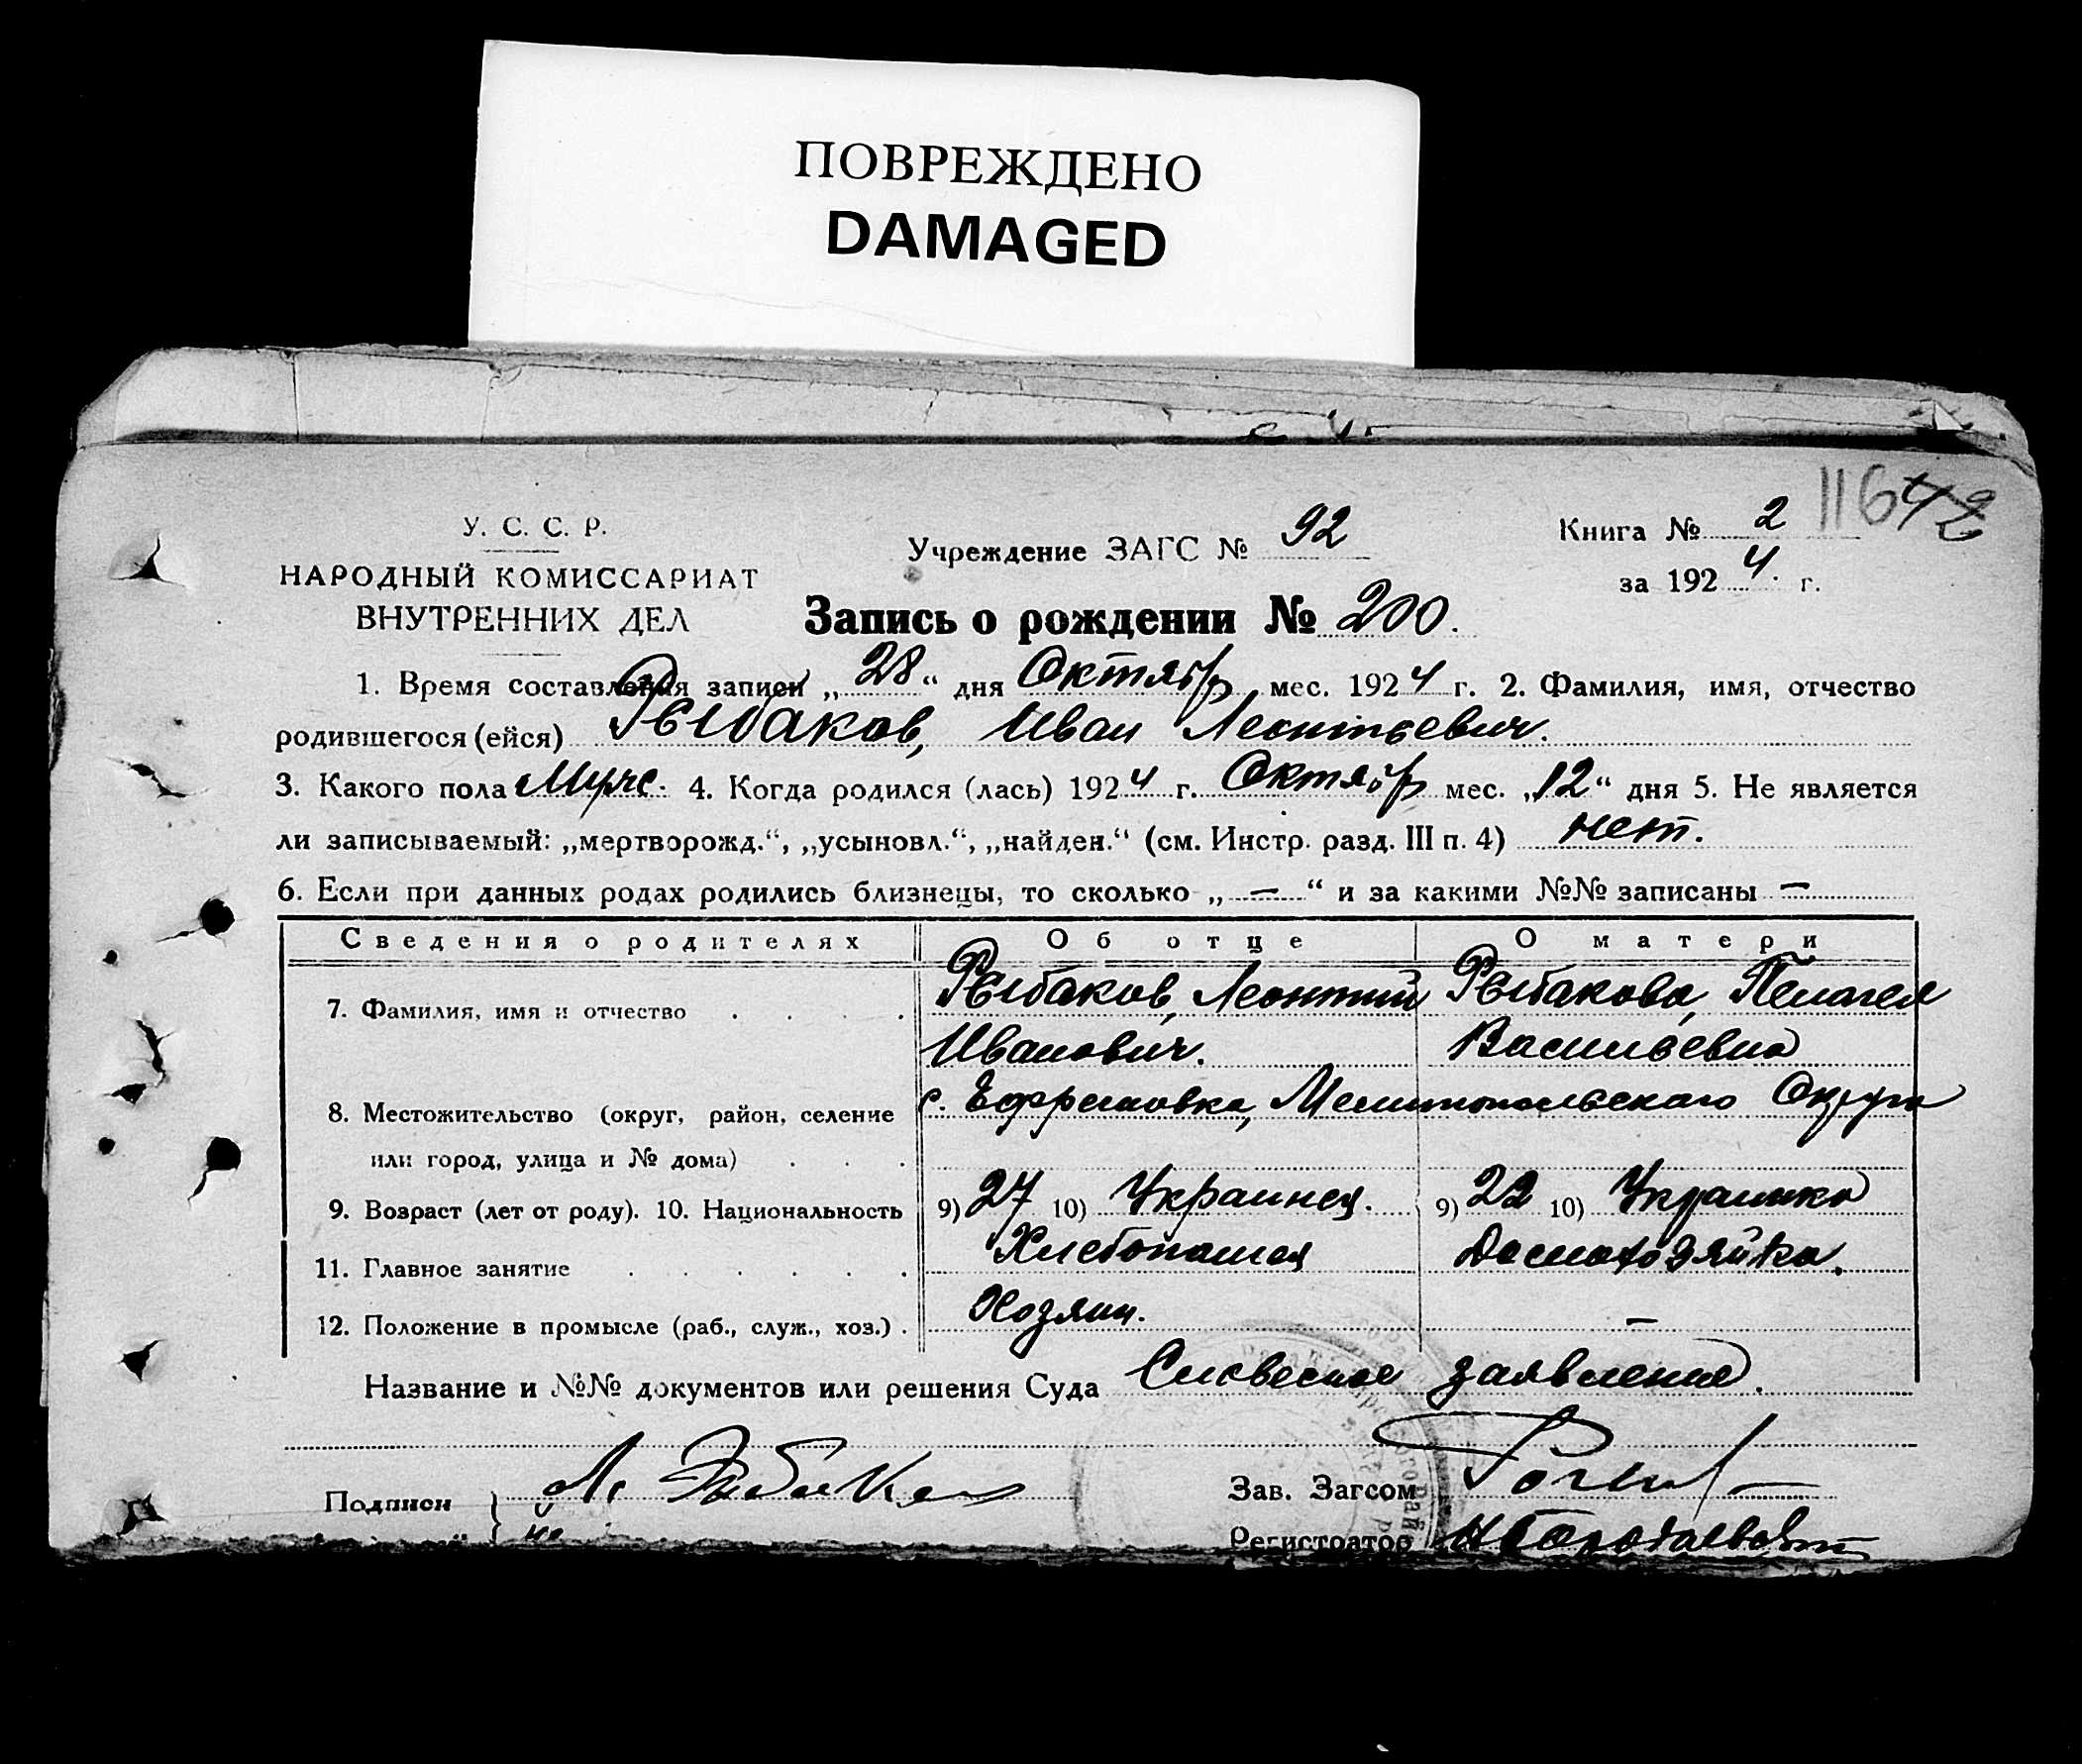 ПОВРЕЖДЕНО
DAMAGED
11642
У. С. С. Р.
НАРОДНЫЙ КОМИССАРИАТ
ВНУТРЕННИХ ДЕЛ
Учреждение ЗАГС № 92
Книга № 2
за 1924 г.
Запись о рождении № 200.
1. Время составления записи „28“ дня Октябр мес. 1924 г. 2. Фамилия, имя, отчество
родившегося (ейся) Рыбаков, Иван Леонтьевич.
3. Какого пола Мужс. 4. Когда родился (лась) 1924 г. Октябр мес. „12“ дня 5. Не является
ли записываемый: „мертворожд.“, „усыновл.“, „найден.“ (см. Инстр. разд. III п. 4) нет.
6. Если при данных родах родились близнецы, то сколько „—“ и за какими №№ записаны —
Сведения о родителях Об отце О матери
7. Фамилия, имя и отчество . . . . Рыбаков, Леонтий Рыбакова, Пелагея
Иванович. Васильевна
8. Местожительство (округ, район, селение с. Ефремовка, Мелитопольскаго Округа
или город, улица и № дома) . . .
9. Возраст (лет от роду). 10. Национальность 9) 27 10) Украинец. 9) 22 10) Украинка
11. Главное занятие . . . . . . Хлебопашец Домохозяйка.
12. Положение в промысле (раб., служ., хоз.) . Хозяин. —
Название и №№ документов или решения Суда Словесное заявление.
Подписи Л. Рыбаков
Зав. Загсом
Регистратор